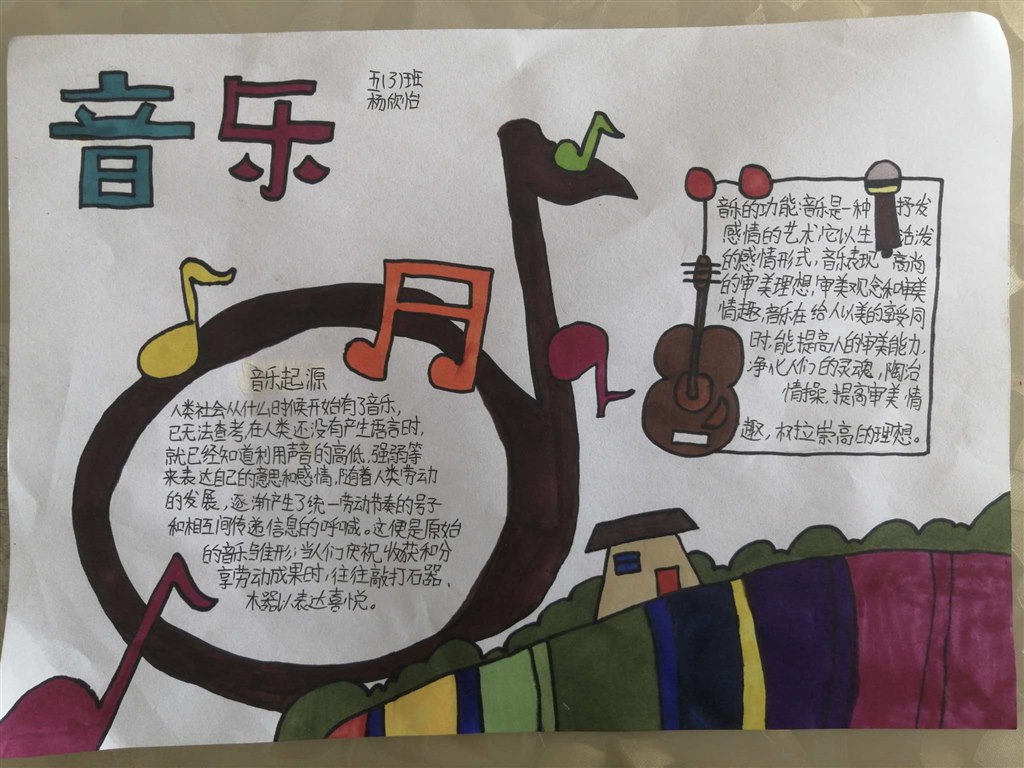 音乐
五(3)班
杨欣怡
音乐起源
人类社会从什么时候开始有了音乐,
已无法查考,在人类还没有产生语言时,
就已经知道利用声音的高低、强弱等
来表达自己的意思和感情,随着人类劳动
的发展,逐渐产生了统一劳动节奏的号子
和相互间传递信息的呼喊。这便是原始
的音乐雏形;当人们庆祝收获和分
享劳动成果时,往往敲打石器、
木器以表达喜悦。
音乐的功能:音乐是一种 抒发
感情的艺术,它以生 活泼
的感情形式,音乐表现 高尚
的审美理想,审美观念和审美
情趣,音乐在给人以美的享受同
时,能提高人的审美能力,
净化人们的灵魂,陶冶
情操,提高审美情
趣,树立崇高的理想。